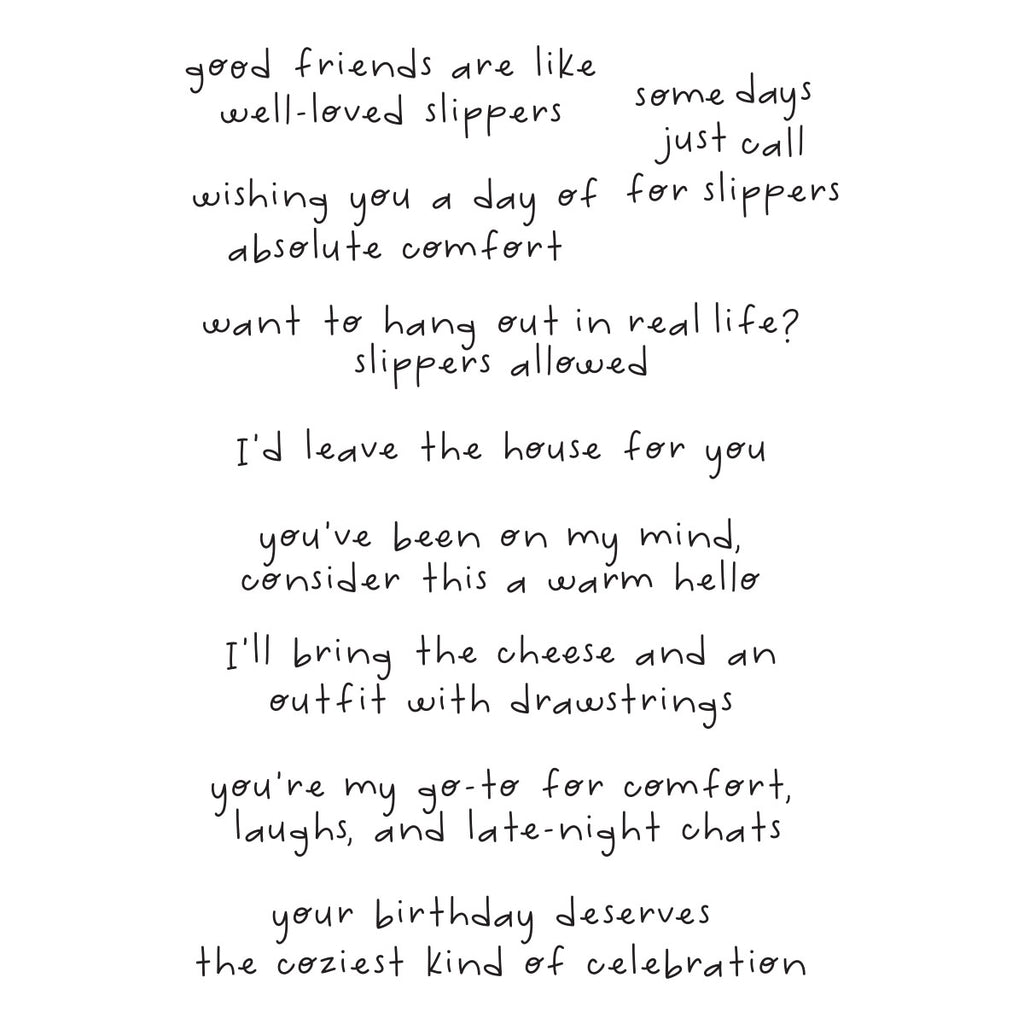 good friends are like
well-loved slippers
some days
just call
for slippers
wishing you a day of
absolute comfort
want to hang out in real life?
slippers allowed
I'd leave the house for you
you've been on my mind,
consider this a warm hello
I'll bring the cheese and an
outfit with drawstrings
you're my go-to for comfort,
laughs, and late-night chats
your birthday deserves
the coziest kind of celebration